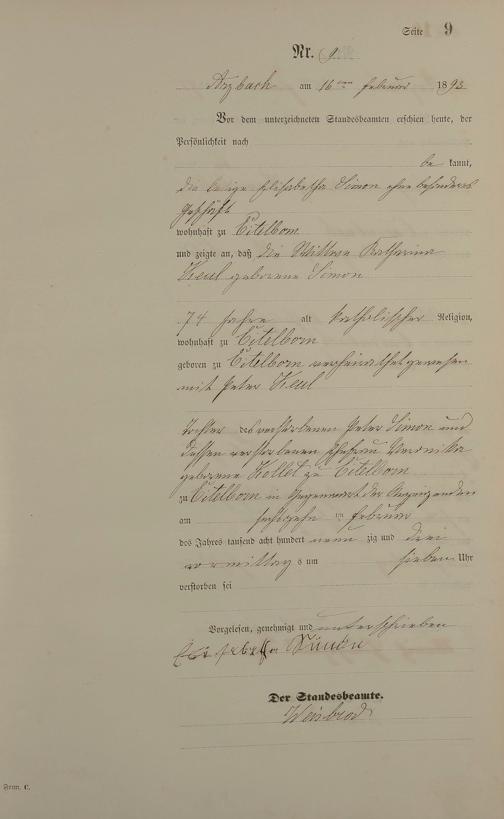 Seite 9
Nr. 9.
Arzbach am 16 ten Februar 1893
Vor dem unterzeichneten Standesbeamten erschien heute, der
Persönlichkeit nach
be kannt,
die ledige Elisabetha Simon ohne besonderes
Geschäft
wohnhaft zu Eitelborn
und zeigte an, daß die Wittwe Katharina
Keul geborene Simon
74 Jahre alt katholischer Religion,
wohnhaft zu Eitelborn
geboren zu Eitelborn verheirathet gewesen
mit Peter Keul
Tochter des verstorbenen Peter Simon und
dessen verstorbenen Ehefrau Veronika
geborene Kollet zu Eitelborn
zu Eitelborn in Gegenwart der Anzeigenden
am sechszehn ten Februar
des Jahres tausend acht hundert neun zig und drei
vormittags um sieben Uhr
verstorben sei
Vorgelesen, genehmigt und unterschrieben
Elisabetha Simon
Der Standesbeamte.
Weisbrod
Form. C.